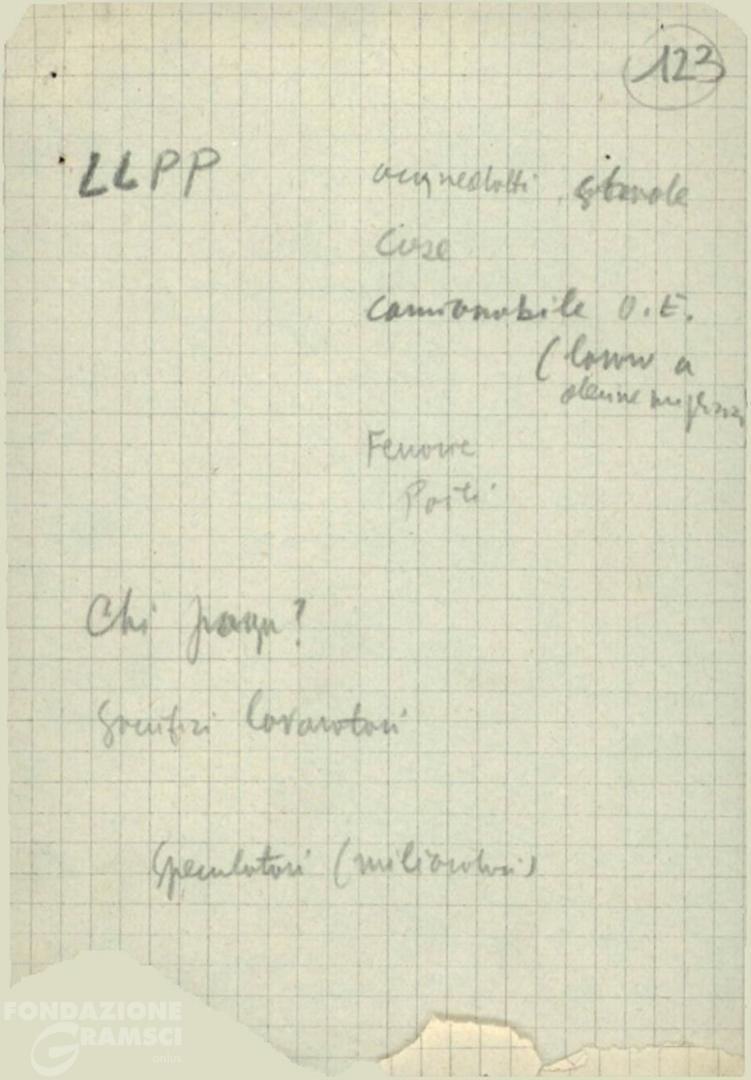 123
LLPP acquedotti, strade
Case
camionabile O.E.
(lavoro a
Ferrovie
Porti
Chi paga?
Sacrifizi lavoratori
Speculatori (miliardari)
FONDAZIONE
GRAMSCI
onlus